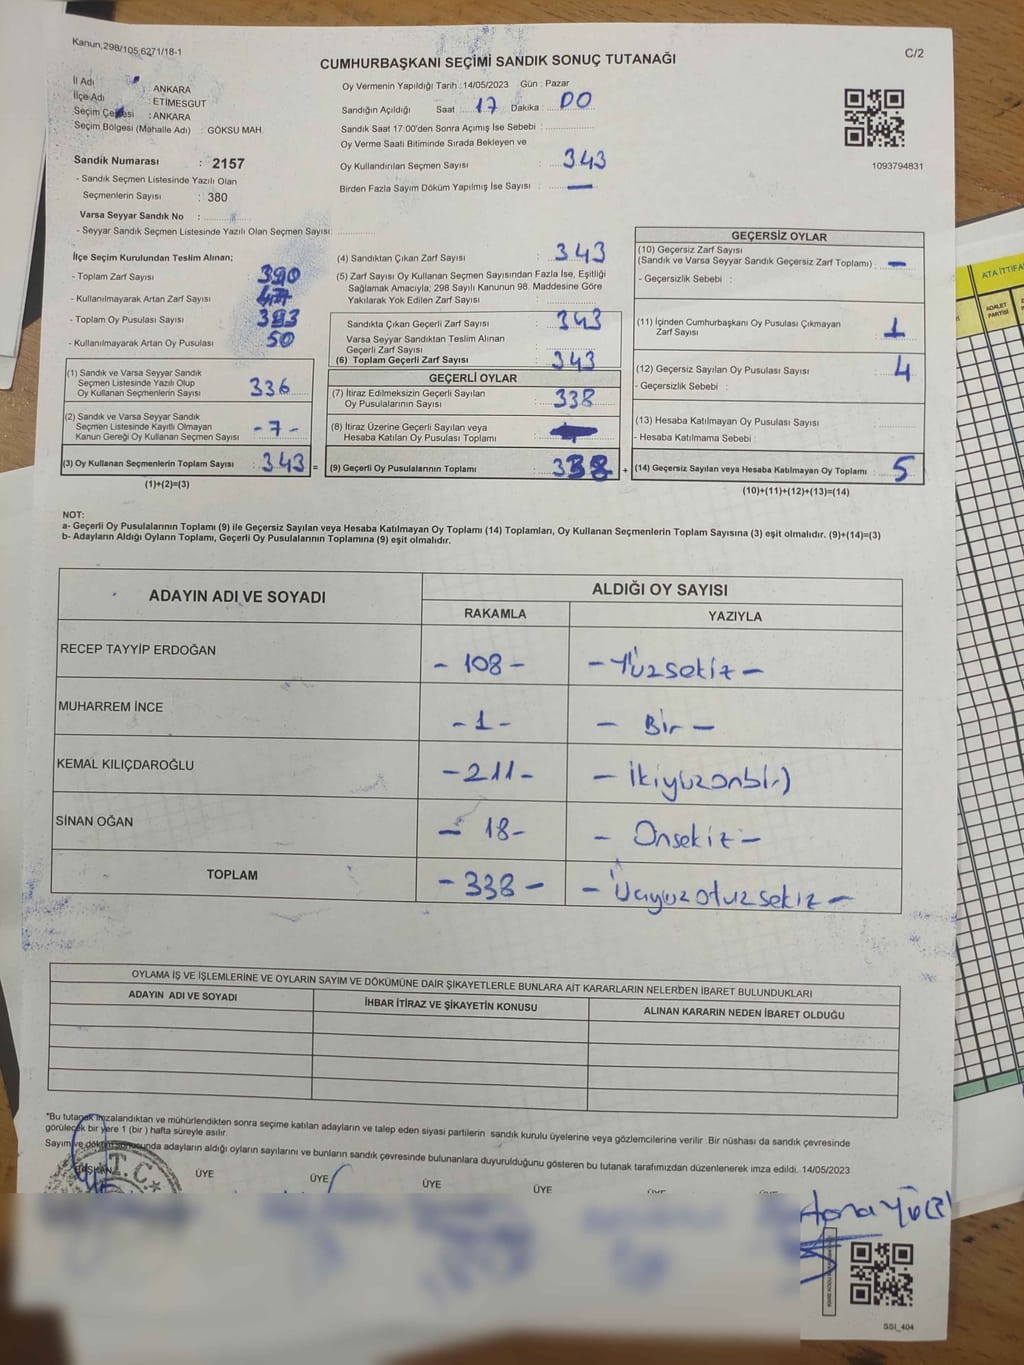 Kanun;298/105,6271/18-1
C/2
CUMHURBAŞKANI SEÇİMİ SANDIK SONUÇ TUTANAĞI
İl Adı : ANKARA
İlçe Adı : ETİMESGUT
Seçim Çevresi : ANKARA
Seçim Bölgesi (Mahalle Adı) : GÖKSU MAH.
Sandık Numarası : 2157
- Sandık Seçmen Listesinde Yazılı Olan
Seçmenlerin Sayısı : 380
Varsa Seyyar Sandık No :
- Seyyar Sandık Seçmen Listesinde Yazılı Olan Seçmen Sayısı:
Oy Vermenin Yapıldığı Tarih :14/05/2023 Gün : Pazar
Sandığın Açıldığı Saat : 17 Dakika : 00
Sandık Saat 17:00'den Sonra Açılmış İse Sebebi :
Oy Verme Saati Bitiminde Sırada Bekleyen ve
Oy Kullandırılan Seçmen Sayısı : 343
Birden Fazla Sayım Döküm Yapılmış İse Sayısı : —
1093794831
İlçe Seçim Kurulundan Teslim Alınan;
- Toplam Zarf Sayısı : 390
- Kullanılmayarak Artan Zarf Sayısı : 47
- Toplam Oy Pusulası Sayısı : 393
- Kullanılmayarak Artan Oy Pusulası : 50
(1) Sandık ve Varsa Seyyar Sandık
Seçmen Listesinde Yazılı Olup
Oy Kullanan Seçmenlerin Sayısı : 336
(2) Sandık ve Varsa Seyyar Sandık
Seçmen Listesinde Kayıtlı Olmayan
Kanun Gereği Oy Kullanan Seçmen Sayısı : -7-
(3) Oy Kullanan Seçmenlerin Toplam Sayısı : 343 =
(1)+(2)=(3)
(4) Sandıktan Çıkan Zarf Sayısı : 343
(5) Zarf Sayısı Oy Kullanan Seçmen Sayısından Fazla İse, Eşitliği
Sağlamak Amacıyla; 298 Sayılı Kanunun 98. Maddesine Göre
Yakılarak Yok Edilen Zarf Sayısı :
Sandıkta Çıkan Geçerli Zarf Sayısı : 343
Varsa Seyyar Sandıktan Teslim Alınan
Geçerli Zarf Sayısı :
(6) Toplam Geçerli Zarf Sayısı : 343
GEÇERLİ OYLAR
(7) İtiraz Edilmeksizin Geçerli Sayılan
Oy Pusulalarının Sayısı : 338
(8) İtiraz Üzerine Geçerli Sayılan veya
Hesaba Katılan Oy Pusulası Toplamı :
(9) Geçerli Oy Pusulalarının Toplamı : 338 +
GEÇERSİZ OYLAR
(10) Geçersiz Zarf Sayısı
(Sandık ve Varsa Seyyar Sandık Geçersiz Zarf Toplamı) : —
- Geçersizlik Sebebi :
(11) İçinden Cumhurbaşkanı Oy Pusulası Çıkmayan
Zarf Sayısı : 1
(12) Geçersiz Sayılan Oy Pusulası Sayısı : 4
- Geçersizlik Sebebi :
(13) Hesaba Katılmayan Oy Pusulası Sayısı :
- Hesaba Katılmama Sebebi :
(14) Geçersiz Sayılan veya Hesaba Katılmayan Oy Toplamı : 5
(10)+(11)+(12)+(13)=(14)
NOT:
a- Geçerli Oy Pusulalarının Toplamı (9) ile Geçersiz Sayılan veya Hesaba Katılmayan Oy Toplamı (14) Toplamları, Oy Kullanan Seçmenlerin Toplam Sayısına (3) eşit olmalıdır. (9)+(14)=(3)
b- Adayların Aldığı Oyların Toplamı, Geçerli Oy Pusulalarının Toplamına (9) eşit olmalıdır.
ADAYIN ADI VE SOYADI
ALDIĞI OY SAYISI
RAKAMLA YAZIYLA
RECEP TAYYİP ERDOĞAN - 108 - - Yüzsekiz -
MUHARREM İNCE - 1 - - Bir -
KEMAL KILIÇDAROĞLU - 211 - - ikiyüzonbir
SİNAN OĞAN - 18 - - Onsekiz -
TOPLAM - 338 - - Üçyüzotuzsekiz -
OYLAMA İŞ VE İŞLEMLERİNE VE OYLARIN SAYIM VE DÖKÜMÜNE DAİR ŞİKAYETLERLE BUNLARA AİT KARARLARIN NELERDEN İBARET BULUNDUKLARI
ADAYIN ADI VE SOYADI İHBAR İTİRAZ VE ŞİKAYETİN KONUSU ALINAN KARARIN NEDEN İBARET OLDUĞU
*Bu tutanak imzalandıktan ve mühürlendikten sonra seçime katılan adayların ve talep eden siyasi partilerin sandık kurulu üyelerine veya gözlemcilerine verilir. Bir nüshası da sandık çevresinde
görülecek bir yere 1 (bir) hafta süreyle asılır.
Sayım ve döküm sonucunda adayların aldığı oyların sayılarını ve bunların sandık çevresinde bulunanlara duyurulduğunu gösteren bu tutanak tarafımızdan düzenlenerek imza edildi. 14/05/2023
BAŞKAN ÜYE ÜYE ÜYE ÜYE ÜYE ÜYE
T.C.
SSI_404
ATA İTTİFA
ADALET
PARTİSİ